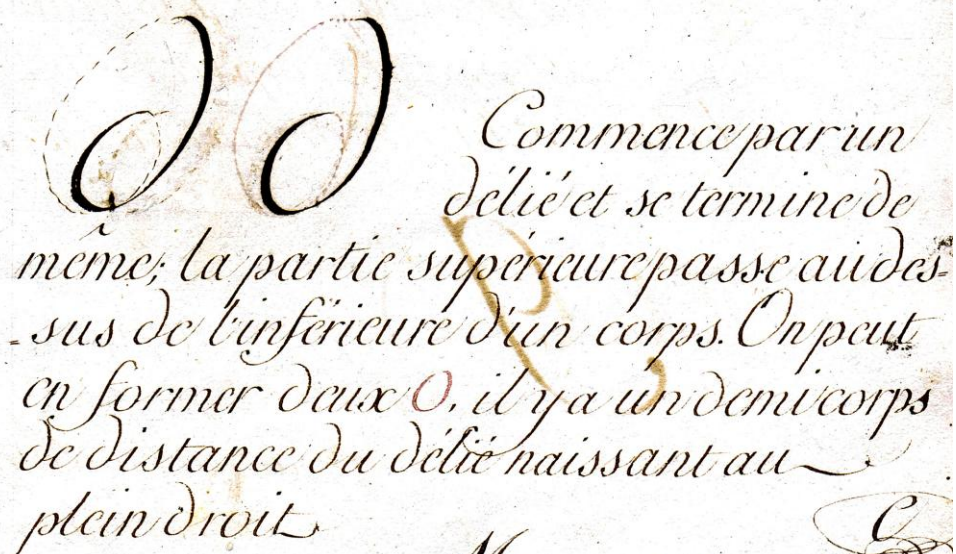 d d
Commence par un
délié et se termine de
même; la partie supérieure passe au des=
-sus de l'inférieure d'un corps. On peut
en former deux O, il y a un demi corps
de distance du délié naissant au
plein droit